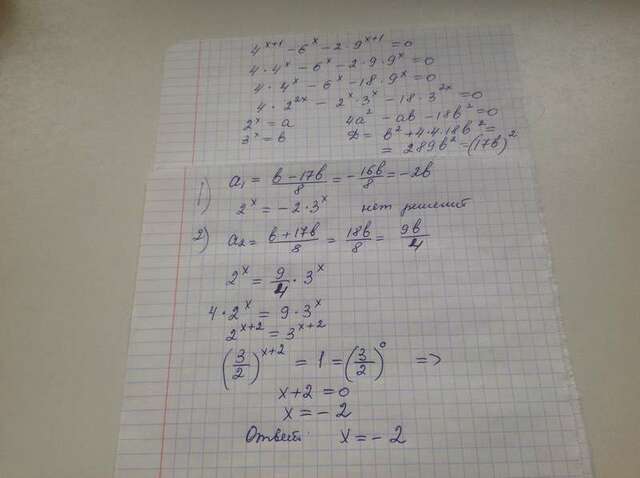 4^(x+1) - 6^x - 2·9^(x+1) = 0
4·4^x - 6^x - 2·9·9^x = 0
4·4^x - 6^x - 18·9^x = 0
4·2^(2x) - 2^x·3^x - 18·3^(2x) = 0
2^x = a 4a² - ab - 18b² = 0
3^x = b D = b² + 4·4·18b² =
= 289b² = (17b)²
1) a₁ = (b - 17b)/8 = -16b/8 = -2b
2^x = -2·3^x нет решений
2) a₂ = (b + 17b)/8 = 18b/8 = 9b/4
2^x = 9/4 · 3^x
4·2^x = 9·3^x
2^(x+2) = 3^(x+2)
(3/2)^(x+2) = 1 = (3/2)^0 =>
x + 2 = 0
x = -2
Ответ: x = -2